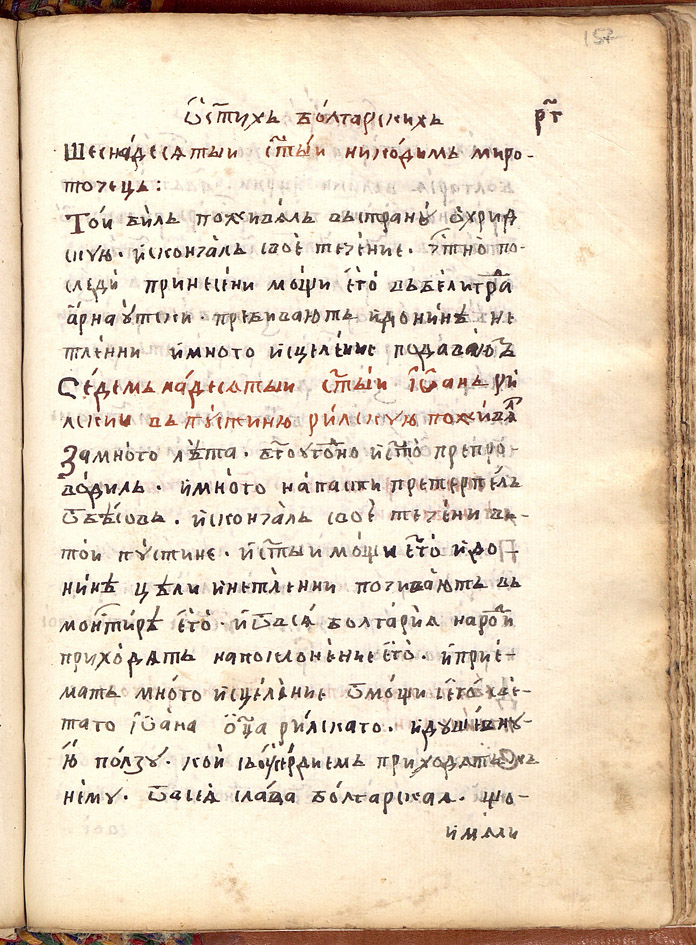 157
Ѡ҆ст҃ихь бо́лгарскихь р҃г
Шесна́десѧтыи ст҃ы́и никоди́мь миро-
точець:
То́и би́ль пожива́ль выстрану̀ ѻ҆хрид
скую· и҆сконча́ль своѐ тече́ние· но по-
следи̏ принесе́ни мо́щи е҆го̀ вьбелигра̑
а҆рнау́тски· пребива́ють и҆донинѣ̀ не
тле́нни и҆много и҆сцеле́ние подава́ют̾
Се́демьна́десѧтыи ст҃ы́и і҆ѡ҃ань ри́
лскіи вьпу́стиню ри́лскую пожива̑л
Замно́го лѣ̀та· б҃гоуго́дно и҆ст҃о препро-
води́ль· и҆мно́го напа́сти претерпе́ль
ѿбѣсовь· и҆сконча́ль своѐ тече́ни вь-
то́и пу́стине· и҆ст҃ы́и мо́щи е҆го̀ и҆до
ни́нѣ цѣ́ли и҆нетлѐнни почива́ють вь
монти́рѣ е҆го̀· и҆ѿвсѧ̀ болга́риѧ наро́ди
прихо́дѧть напоклоне́ние е҆го̀· и҆прие́-
мать мно́го и҆сцеле́ние ѿмо́щи е҆го̀ хсе-
таго і҆ѡ҃а́на ѻ҆ц҃а ри́лскаго· и҆душе́вну-
ю ползу̀· кои сьоу҆се́рдиемь прихо́дѧть кь
нему̀· ѿвсеѧ̀ сла́ва бо́лгарскаѧ· що-
и҆ма́ли